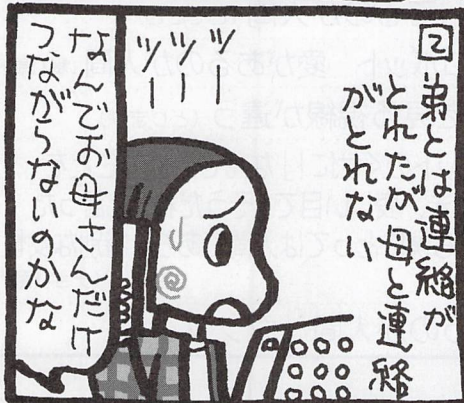 2 弟とは連絡が
とれたが母と連絡
がとれなー
ツツツ
なんでお母さんだけ
つながらないのかな